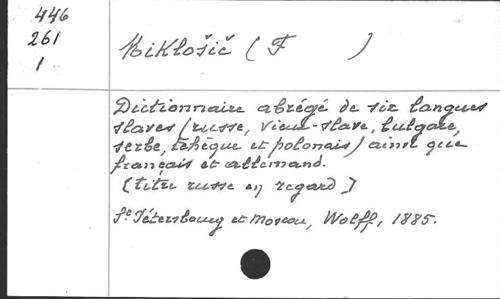 446
261
1
Miklošič ( F )
Dictionnaire abrégé de six langues
slaves (russe, vieux-slave, bulgare,
serbe, tchèque et polonais) ainsi que
français et allemand.
(titre russe en regard)
St Pétersbourg et Moscou, Wolff, 1885.